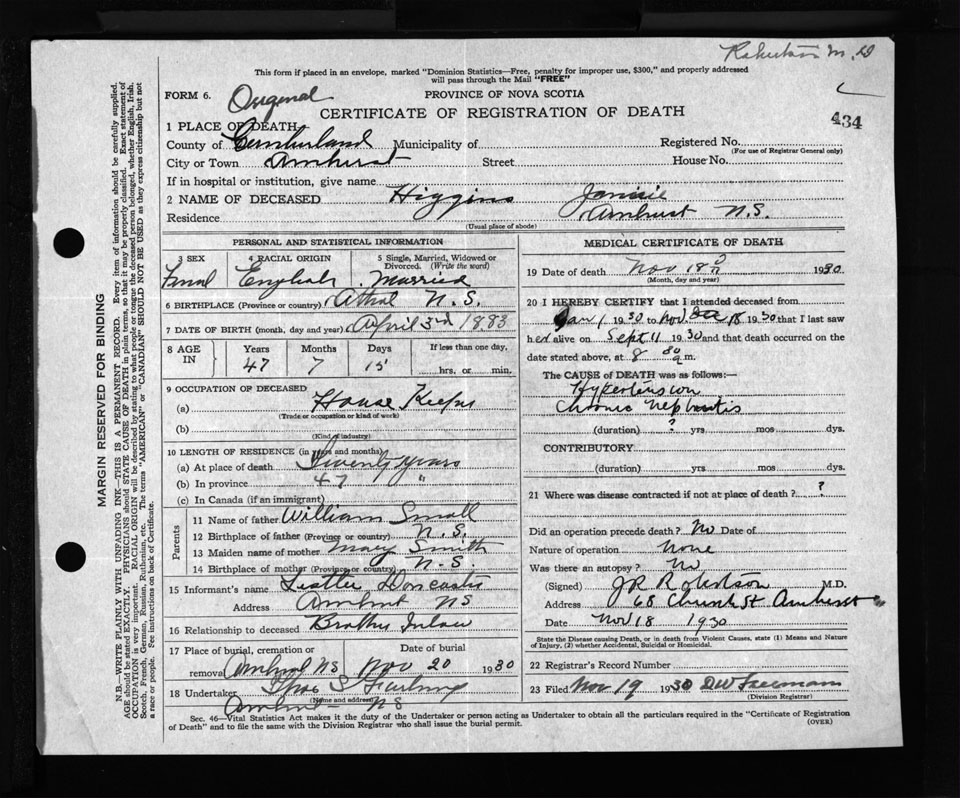 Robertson M.D
This form if placed in an envelope, marked "Dominion Statistics—Free, penalty for improper use, $300," and properly addressed
will pass through the Mail "FREE"
FORM 6. Original PROVINCE OF NOVA SCOTIA
CERTIFICATE OF REGISTRATION OF DEATH
434
1 PLACE OF DEATH
County of Cumberland Municipality of Registered No.
(For use of Registrar General only)
City or Town Amherst Street House No.
If in hospital or institution, give name
2 NAME OF DECEASED Higgins
Residence Amherst N.S.
(Usual place of abode)
PERSONAL AND STATISTICAL INFORMATION
3 SEX 4 RACIAL ORIGIN 5 Single, Married, Widowed or
Divorced. (Write the word)
English Married
6 BIRTHPLACE (Province or country) Athol N.S.
7 DATE OF BIRTH (month, day and year) April 3rd 1883
8 AGE IN Years Months Days If less than one day,
47 7 15 hrs. or min.
9 OCCUPATION OF DECEASED
(a) House Keeper
(Trade or occupation or kind of work)
(b)
(Kind of industry)
10 LENGTH OF RESIDENCE (in years and months)
(a) At place of death Twenty years
(b) In province 47 "
(c) In Canada (if an immigrant)
Parents
11 Name of father William Small
12 Birthplace of father (Province or country) N.S.
13 Maiden name of mother Mary Smith
14 Birthplace of mother (Province or country) N.S.
15 Informant's name
Address Amherst NS
16 Relationship to deceased Brother Inlaw
17 Place of burial, cremation or Date of burial
removal Amherst NS Nov 20 1930
18 Undertaker
(Name and address)
Amherst NS
MEDICAL CERTIFICATE OF DEATH
19 Date of death Nov 18 1930
(Month, day and year)
20 I HEREBY CERTIFY that I attended deceased from
Jan 1 1930 to Nov. 18 1930 that I last saw
her alive on Sept 11 1930 and that death occurred on the
date stated above, at 8 30 a m.
The CAUSE of DEATH was as follows:—
Hypertension
Chronic Nephritis
(duration) ? yrs mos dys.
CONTRIBUTORY
(duration) yrs mos dys.
21 Where was disease contracted if not at place of death? ?
Did an operation precede death? No Date of
Nature of operation None
Was there an autopsy? No
(Signed) JR Robertson M.D.
Address 68 Church St Amherst
Date Nov 18 1930
State the Disease causing Death, or in death from Violent Causes, state (1) Means and Nature
of Injury, (2) whether Accidental, Suicidal or Homicidal.
22 Registrar's Record Number
23 Filed Nov 19 1930 DW Freeman
(Division Registrar)
Sec. 46—Vital Statistics Act makes it the duty of the Undertaker or person acting as Undertaker to obtain all the particulars required in the "Certificate of Registration
of Death" and to file the same with the Division Registrar who shall issue the burial permit.
(OVER)
MARGIN RESERVED FOR BINDING
N.B.—WRITE PLAINLY WITH UNFADING INK—THIS IS A PERMANENT RECORD. Every item of information should be carefully supplied.
AGE should be stated EXACTLY. PHYSICIANS should STATE CAUSE OF DEATH in plain terms, so that it may be properly classified. Exact statement of
OCCUPATION is very important. RACIAL ORIGIN will be described by stating to what people or tongue the deceased person belonged, whether English, Irish,
Scotch, French, German, Russian, Ruthenian, etc. The terms "AMERICAN" or "CANADIAN" SHOULD NOT BE USED as they express citizenship but not
a race or people. See instructions on back of Certificate.